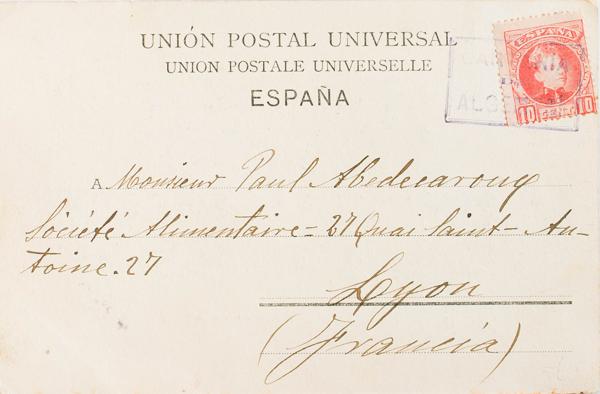 UNIÓN POSTAL UNIVERSAL
UNION POSTALE UNIVERSELLE
ESPAÑA
ESPAÑA
10 10
A Monsieur Paul
Société Alimentaire = 27 Quai Saint-An-
toine. 27
Lyon
(Francia)